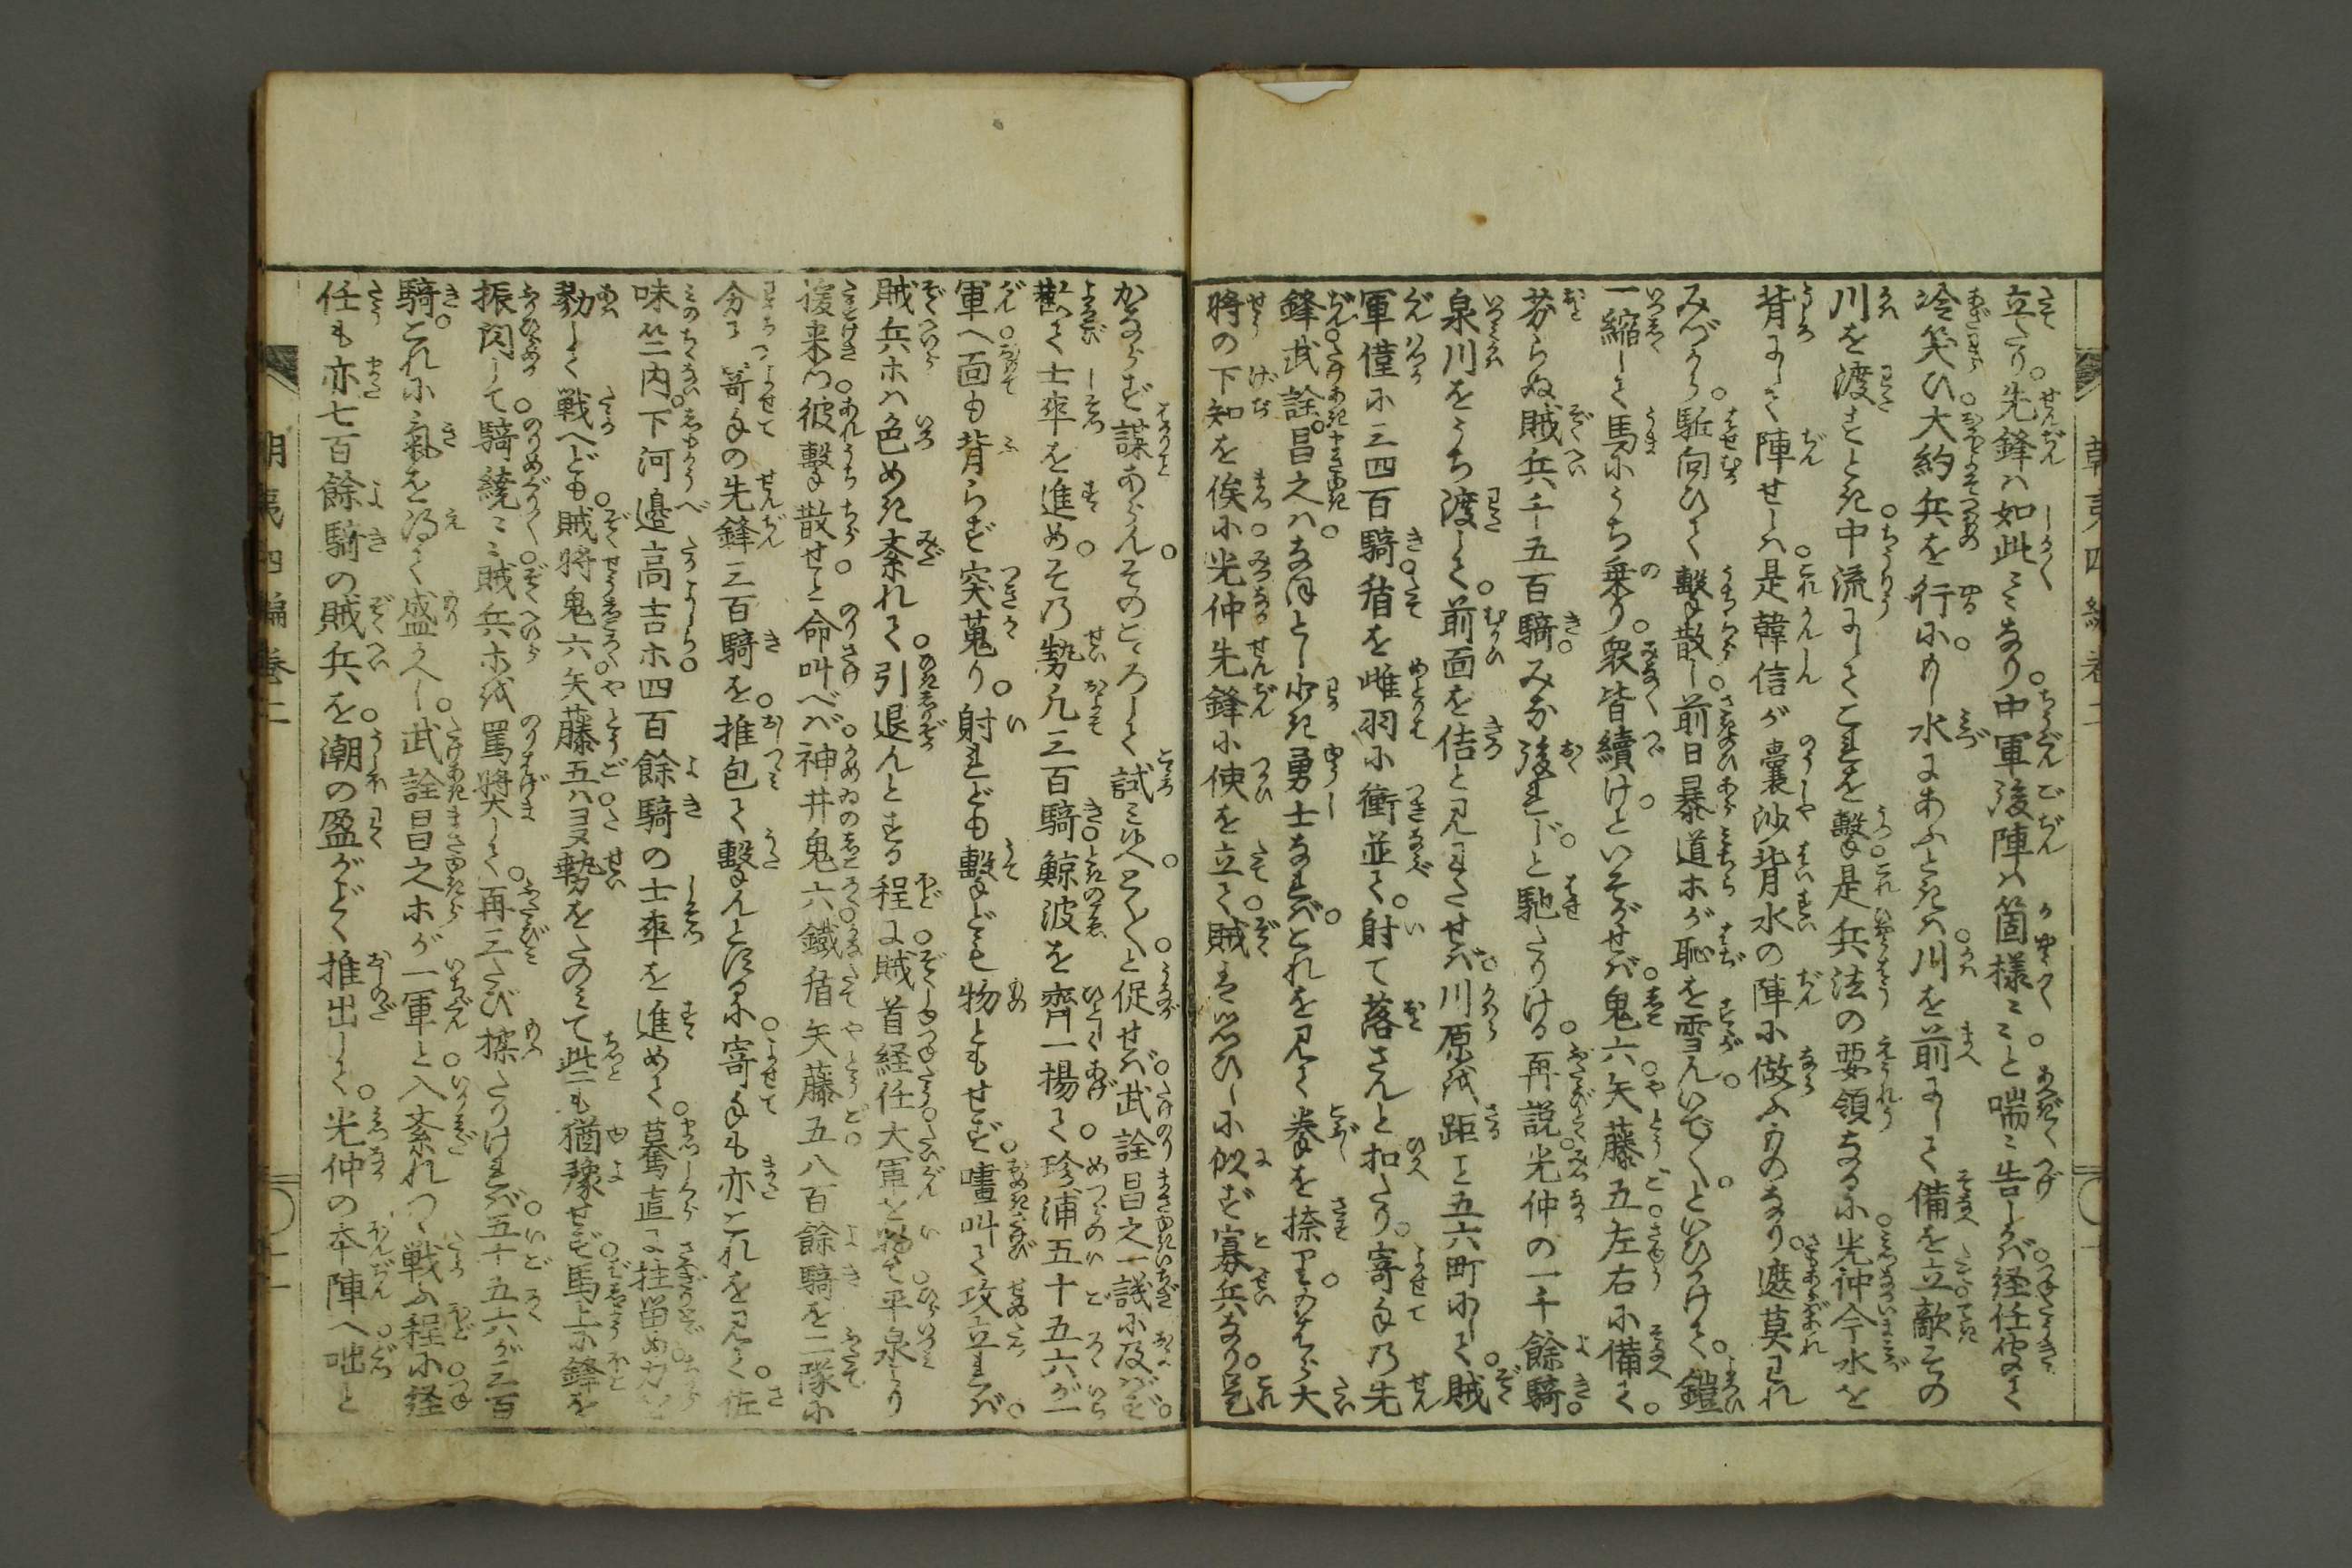 立たり。先鋒ハ如此〻〻なり。中軍後陣ハ箇様〻〻と喘〻告しかバ。経任
冷笑ひ。大約兵を行ふに。水にあふときハ。川を前にして備を立。敵その
川を渡すとき。中流にしてこれを撃。是兵法の要領なるに。光仲今水を
背にして陣せしハ。是韓信が嚢沙背水の陣に倣ふものなり。遮莫われ
みづから。駈向ひて撃散し。前日暴道ホが恥を雪んいで〳〵。といひかけて。鎧
一縮して馬にうち乗り。衆皆續け。といそがせバ。鬼六。矢藤五。左右に備て。
劣らぬ賊兵千五百騎。みな後れじ。と馳たりける。再説光仲の一千餘騎。
泉川をうち渡して。前面を佶と見わたせバ。川原を距こと五六町にして。賊
軍僅に三四百騎。盾を雌羽に衝並て。射て落さんと扣たり。寄手の先
鋒武詮。昌之ハ。なほとし少き勇士なれバ。これを見て拳を捺り。大
將の下知を俟に。光仲先鋒に使を立て。賊は思ひしに似ず寡兵なり。是
かならず謀あらん。そのこゝろして試みよ。とく〳〵。と促せバ。武詮昌之一議に及ばず。
歡て士卒を進め。その勢凡三百騎。鯨波を齊一揚て。珍浦五十五六が一
軍へ面も背らず突蒐り。射れども撃ども物ともせず。嘑叫て攻立れバ。
賊兵ホハ色めき紊れて。引退んとする程に。賊首経任大軍を將て平泉より
援来つ。彼撃散せ。と命叫べバ。神井鬼六。鐵盾矢藤五。八百餘騎を二隊に
分ち。寄手の先鋒三百騎を。推包て撃んとするに。寄手も亦これを見て。佐
味竺内。下河邉高吉ホ四百餘騎の士卒を進めて。驀直に拄畄め。力を
勠して戦へども。賊將鬼六。矢藤五ハ。勢をたのみて些も猶豫せず。馬上に鋒を
振閃して。騎繞〻〻賊兵ホを罵奬して。再三たび揉たりけれバ。五十五六が三百
騎。これに氣を得て盛かへし。武詮昌之ホが一軍と入紊れつゝ戦ふ程に。経
任も亦七百餘騎の賊兵を。潮の盈がごとく推出して。光仲の本陣へ咄と
朝夷四編巻二
朝夷四編巻二